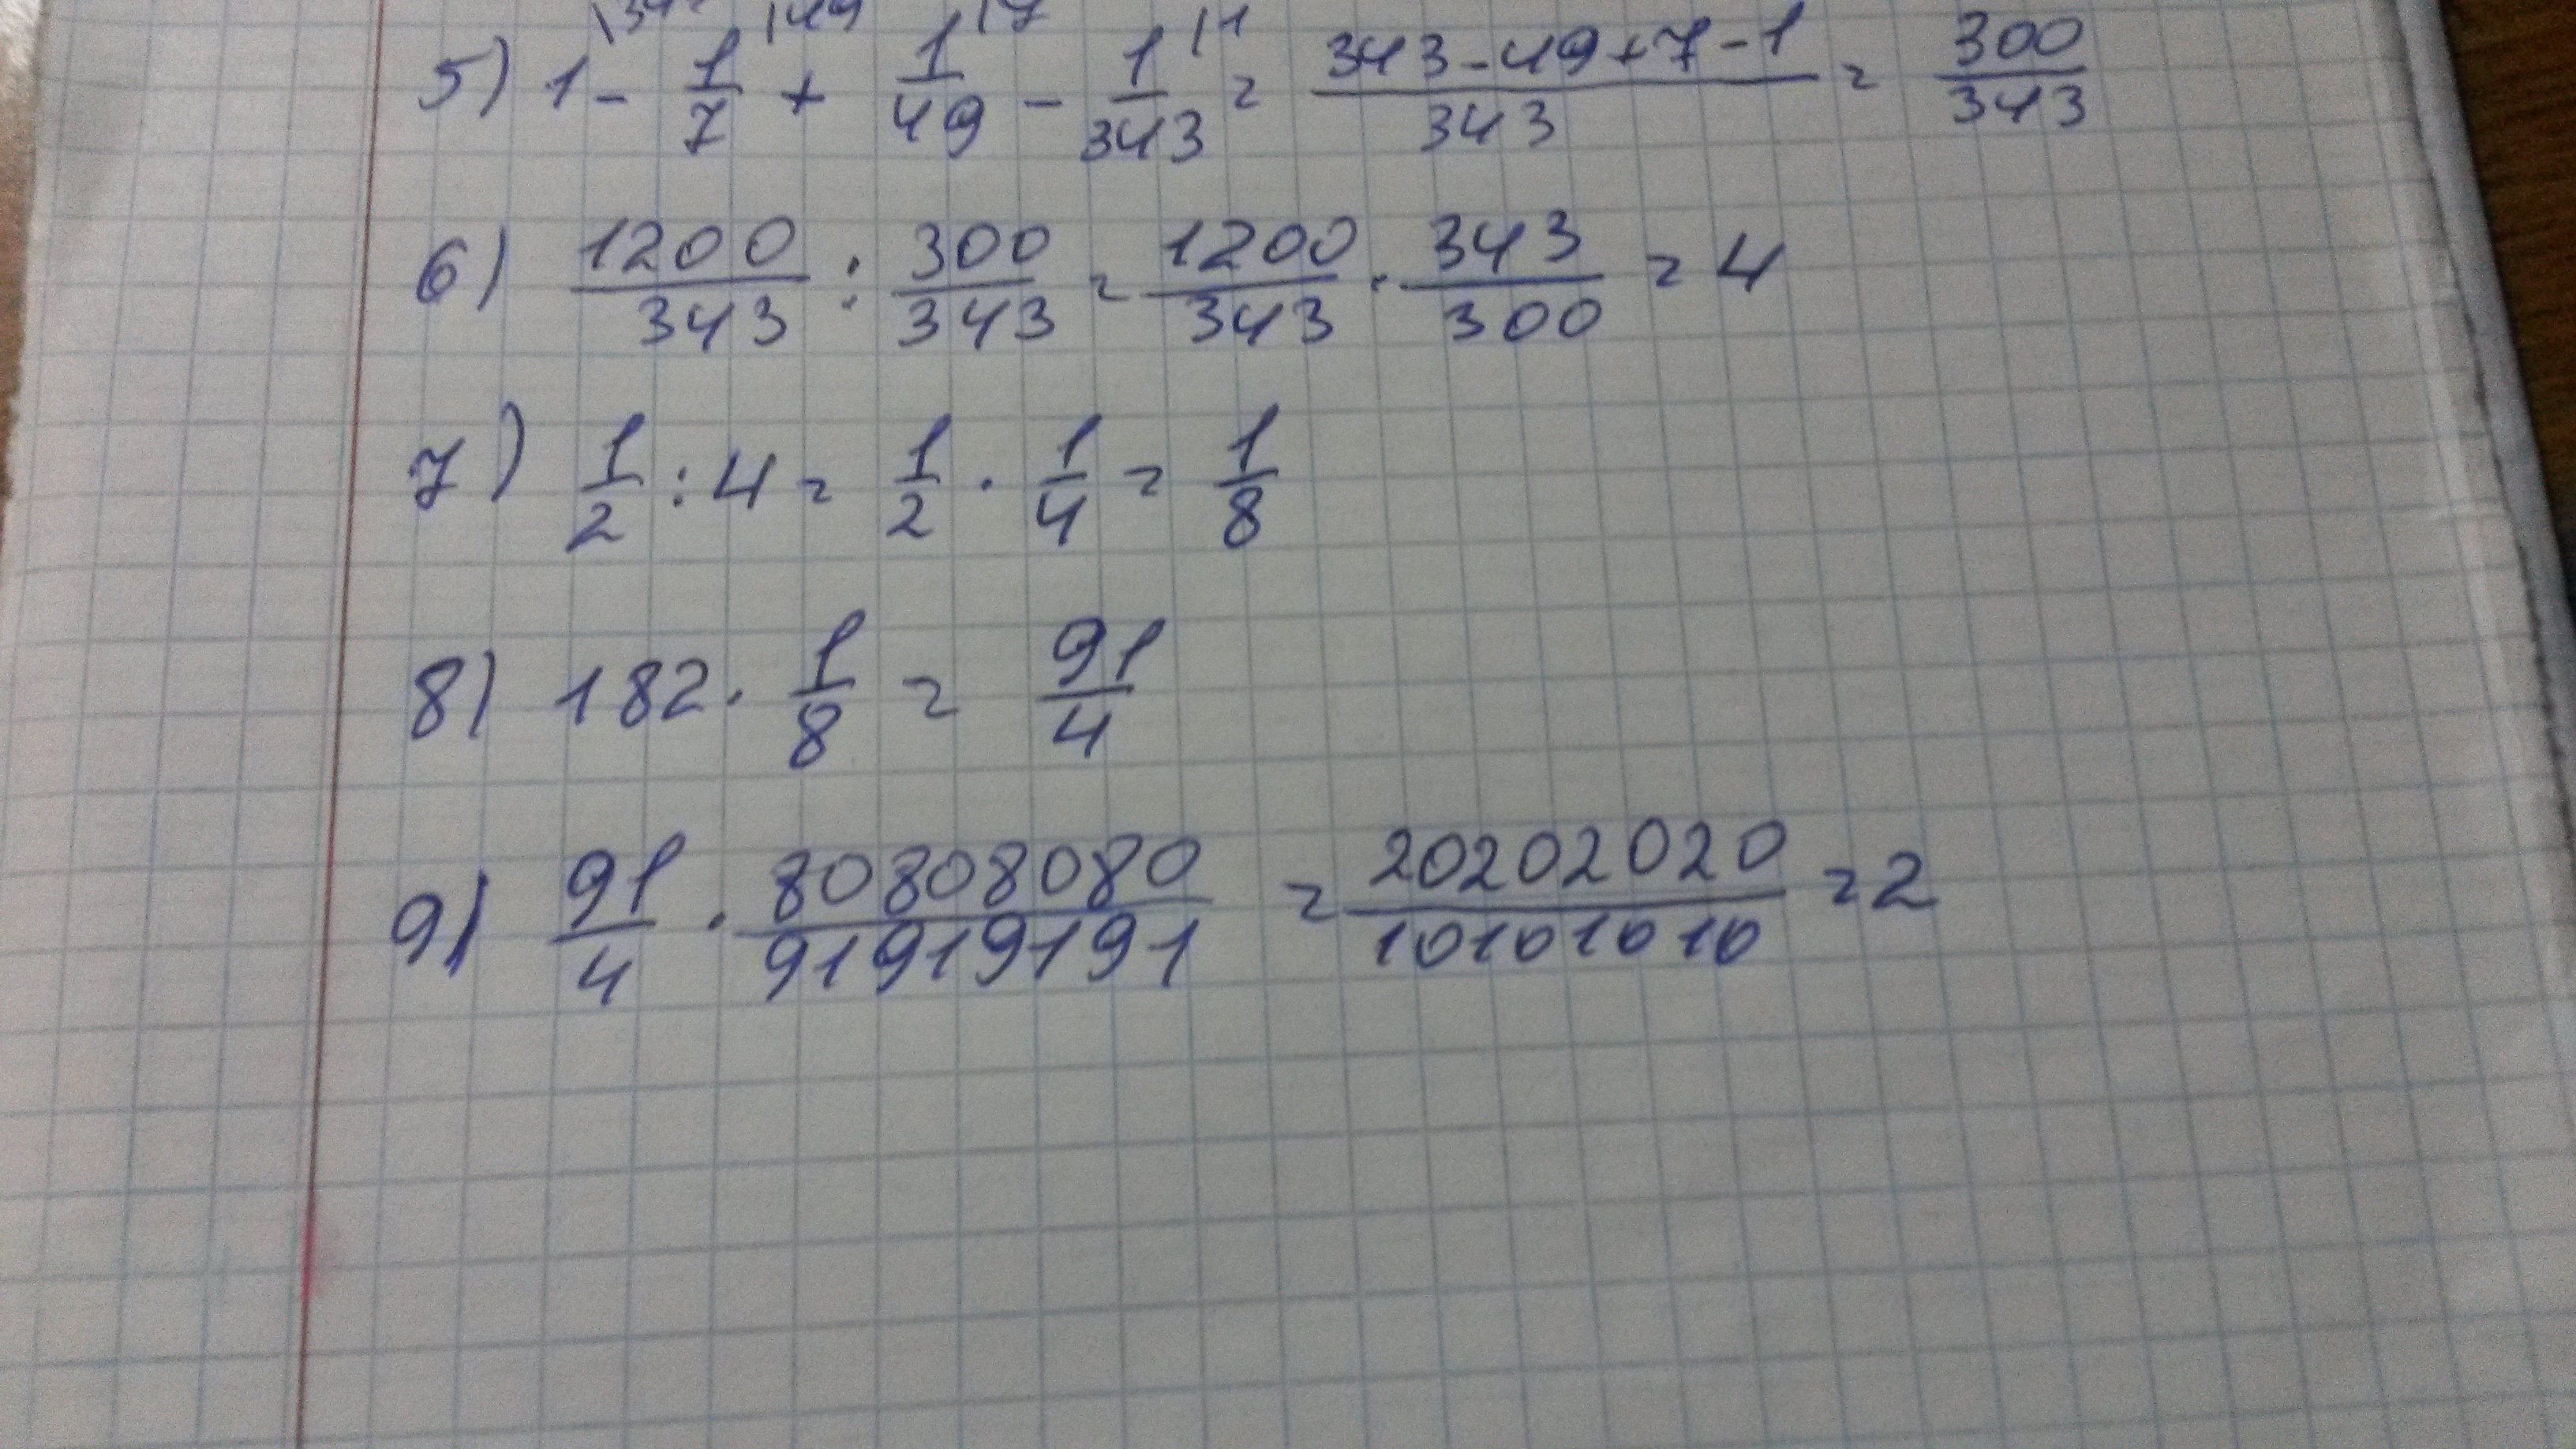 5) 1 - 1/7 |49 + 1/49 |7 - 1/343 |1 = (343-49+7-1)/343 = 300/343
6) 1200/343 : 300/343 = 1200/343 · 343/300 = 4
7) 1/2 : 4 = 1/2 · 1/4 = 1/8
8) 182 · 1/8 = 91/4
9) 91/4 · 80808080/91919191 = 20202020/10101010 = 2